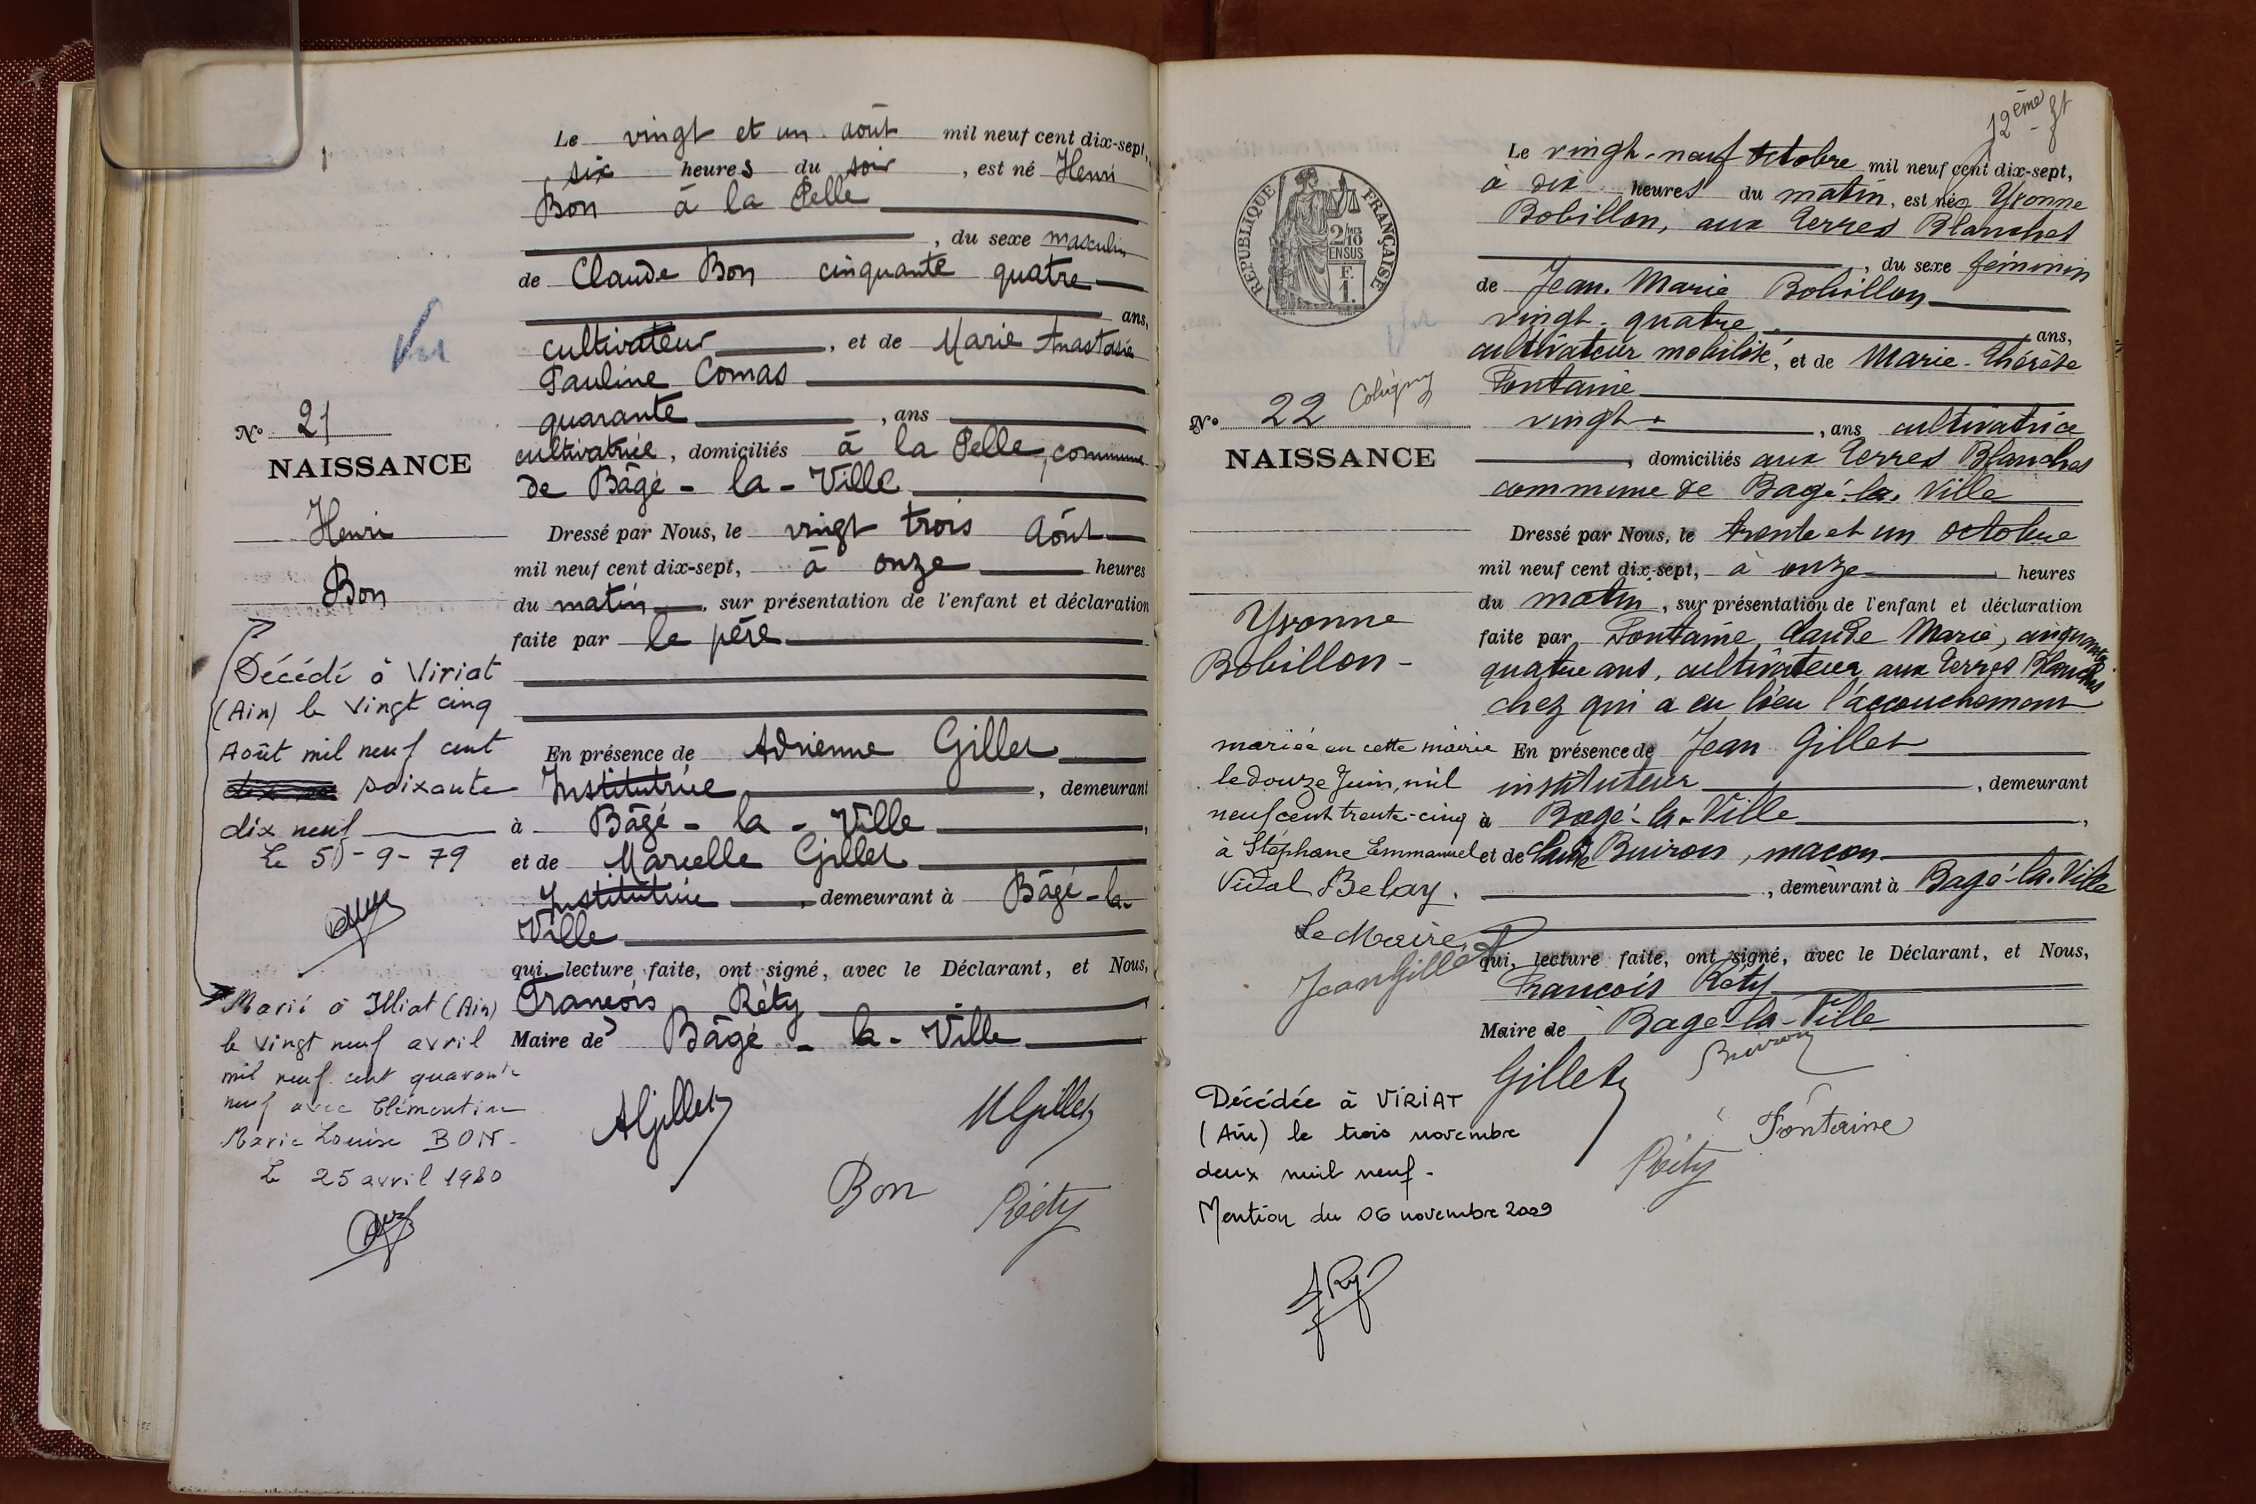 Le vingt et un août mil neuf cent dix-sept,
six heures du soir, est né Henri
Bon à la Pelle
, du sexe masculin
de Claude Bon cinquante quatre
ans,
cultivateur, et de Marie Anastasie
Pauline Comas
quarante, ans
cultivatrice, domiciliés à la Pelle, commune
de Bâgé-la-Ville
Dressé par Nous, le vingt trois Août
mil neuf cent dix-sept, à onze heures
du matin, sur présentation de l'enfant et déclaration
faite par le père
En présence de Adrienne Gillet
Institutrice, demeurant
à Bâgé-la-Ville,
et de Marcelle Gillet
Institutrice, demeurant à Bâgé-la-
Ville
qui, lecture faite, ont signé, avec le Déclarant, et Nous,
François Réty
Maire de Bâgé-la-Ville
AGillet
MGillet
Bon
Réty
Vu
No 21
NAISSANCE
Henri
Bon
Décédé à Viriat
(Ain) le vingt cinq
Août mil neuf cent
soixante
dix neuf
Le 5-9-79
Marié à Illiat (Ain)
le vingt neuf avril
mil neuf cent quarante
neuf avec Clémentine
Marie Louise BON-
Le 25 avril 1980
12ème ft
REPUBLIQUE FRANÇAISE
2/10
EN SUS
F.
1.
Le vingt-neuf octobre mil neuf cent dix-sept,
à dix heures du matin, est née Yvonne
Bobillon, aux Terres Blanches
, du sexe féminin
de Jean-Marie Bobillon
vingt-quatre ans,
cultivateur mobilisé, et de Marie-Thérèse
Fontaine
vingt, ans cultivatrice
, domiciliés aux Terres Blanches
commune de Bagé-la-Ville
Dressé par Nous, le trente et un octobre
mil neuf cent dix-sept, à onze heures
du matin, sur présentation de l'enfant et déclaration
faite par Fontaine Claude Marie, cinquante
quatre ans, cultivateur aux Terres Blanches
chez qui a eu lieu l'accouchement
En présence de Jean Gillet
instituteur, demeurant
à Bagé-la-Ville,
et de Claude Buiron, maçon
, demeurant à Bagé-la-Ville
qui, lecture faite, ont signé, avec le Déclarant, et Nous,
François Réty
Maire de Bagé-la-Ville
Gillet
Buiron
Fontaine
Réty
No 22 Coligny
NAISSANCE
Yvonne
Bobillon-
mariée en cette mairie
le douze Juin, mil
neuf cent trente-cinq
à Stéphane Emmanuel
Vidal Belay.
Le Maire,
Jean Gillet
Décédée à VIRIAT
(Ain) le trois novembre
deux mil neuf-
Mention du 06 novembre 2009